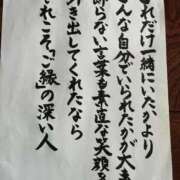 れだけ一緒にいたかより
んな自分でいられたかが大事
飾らない言葉も素直な笑顔
引き出してくれたなら
それこそ「ご縁」の深い人